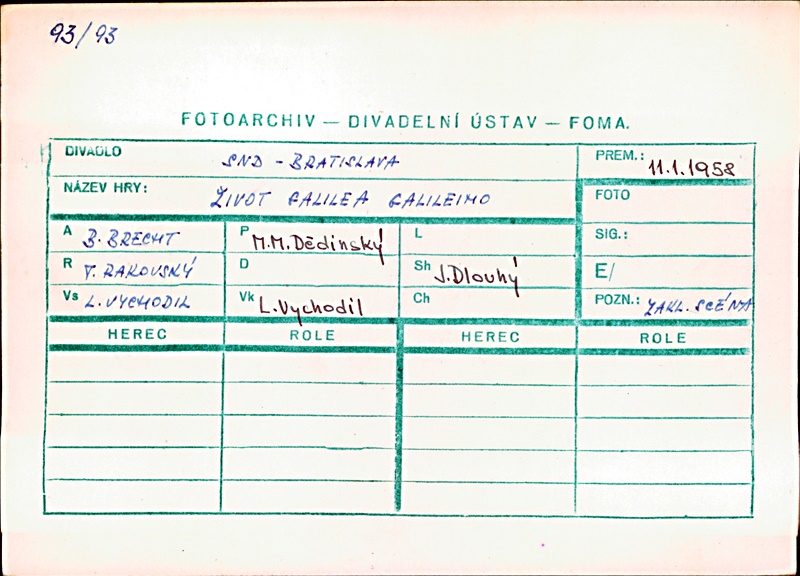 93/93
FOTOARCHIV — DIVADELNÍ ÚSTAV — FOMA.
DIVADLO SND - BRATISLAVA PREM.: 11.1.1958
NÁZEV HRY: ŽIVOT GALILEA GALILEIHO FOTO
A B. BRECHT P M.M. Dědinský L SIG.:
R T. RAKOVSKÝ D Sh J. Dlouhý E/
Vs L. VYCHODIL Vk L. Vychodil Ch POZN.: ZÁKL. SCÉNA
HEREC ROLE HEREC ROLE